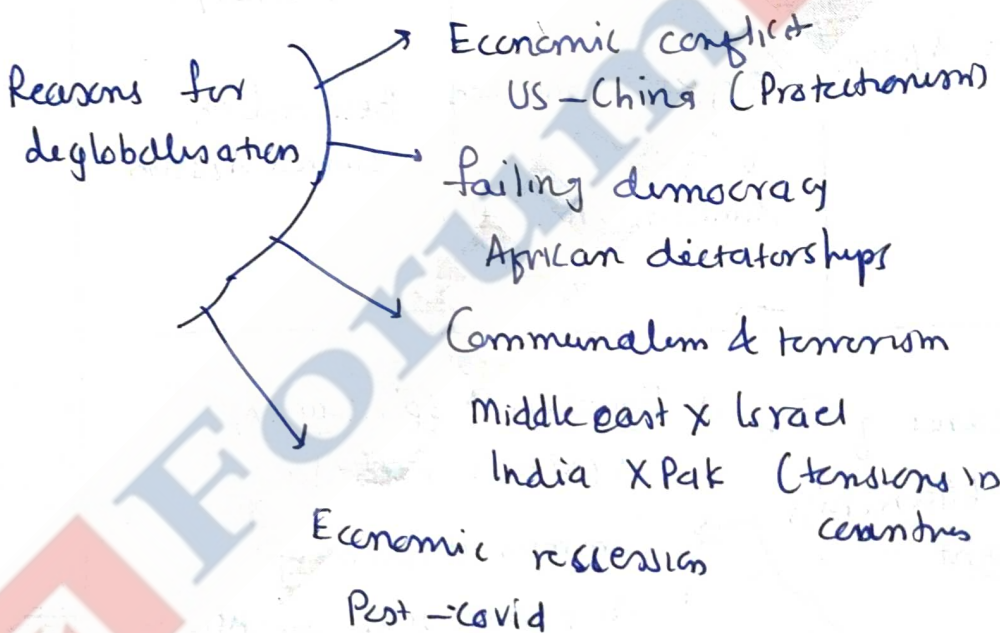 Reasons for
deglobalisation
Economic conflict
US - China (Protectionism)
failing democracy
African dictatorships
Communalism & terrorism
Middle east X Israel
India X Pak (tensions in
countries
Economic ressession
Post - Covid
Forum